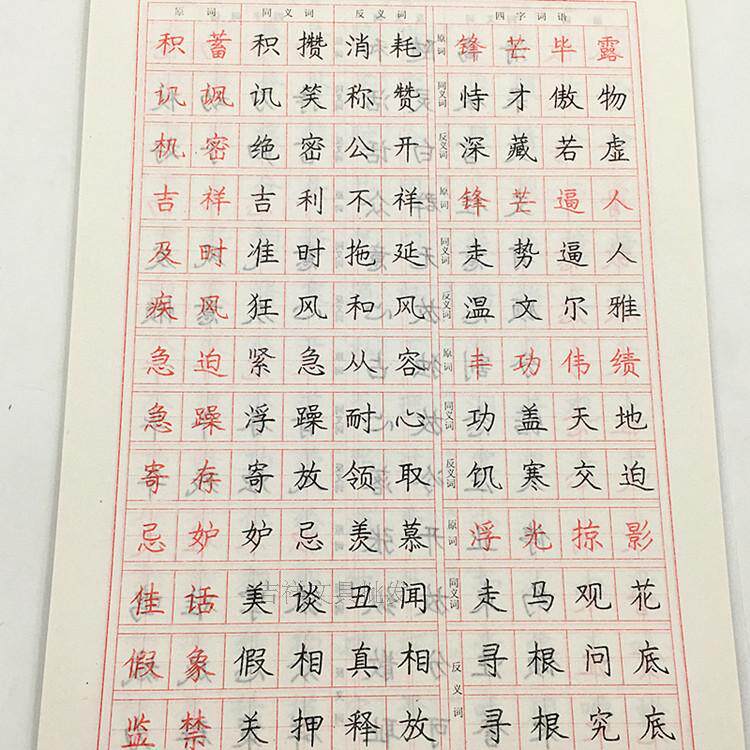 原词 同义词 反义词 四字词语
积蓄 积攒 消耗 原词 锋芒毕露
讥讽 讥笑 称赞 同义词 恃才傲物
机密 绝密 公开 反义词 深藏若虚
吉祥 吉利 不祥 原词 锋芒逼人
及时 准时 拖延 同义词 走势逼人
疾风 狂风 和风 反义词 温文尔雅
急迫 紧急 从容 原词 丰功伟绩
急躁 浮躁 耐心 同义词 功盖天地
寄存 寄放 领取 反义词 饥寒交迫
忌妒 妒忌 羡慕 原词 浮光掠影
佳话 美谈 丑闻 同义词 走马观花
假象 假相 真相 反义词 寻根问底
监禁 关押 释放 寻根究底
吉祥文具批发